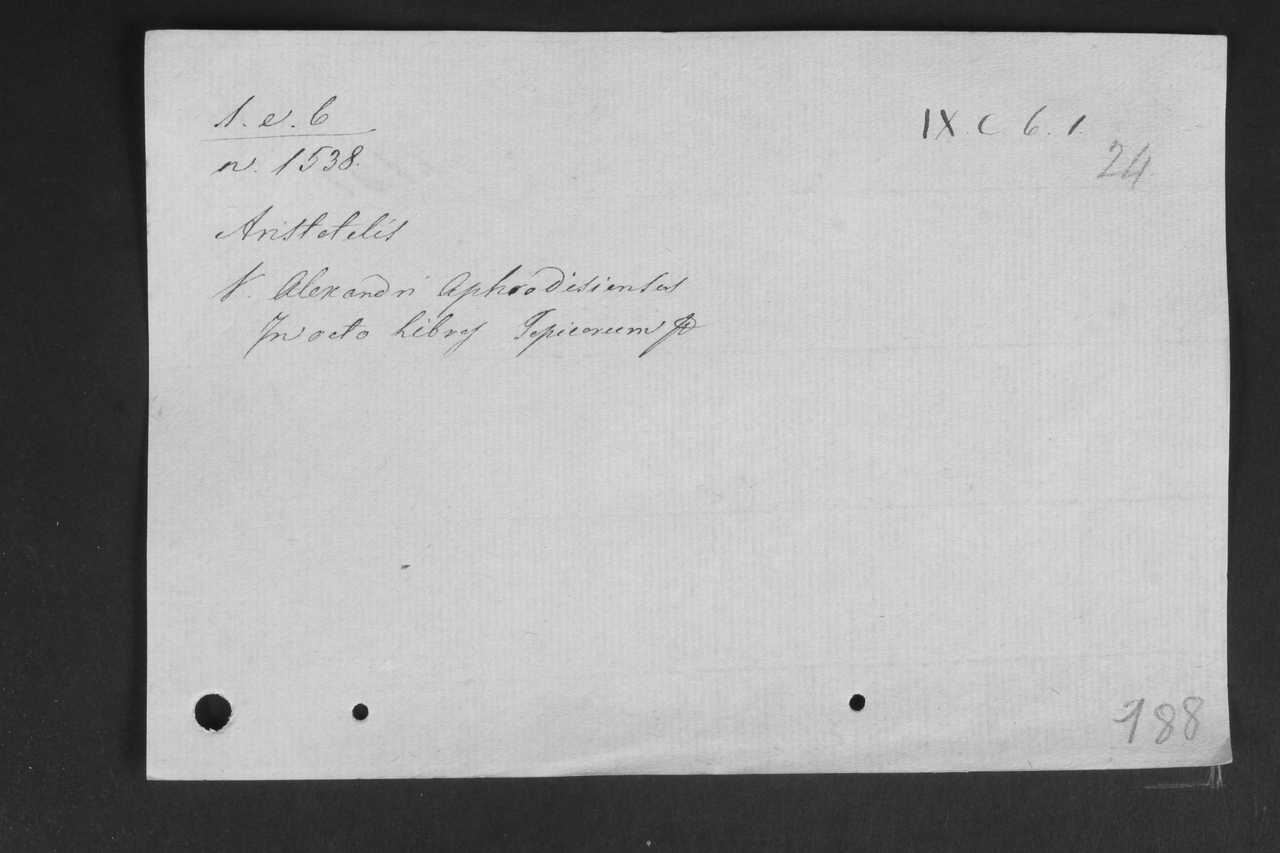 1. e. 6
n. 1538.
IX. C 6. 1.
24
Aristotelis
V. Alexandri Aphrodisiensis
In octo Libros Topicorum
188